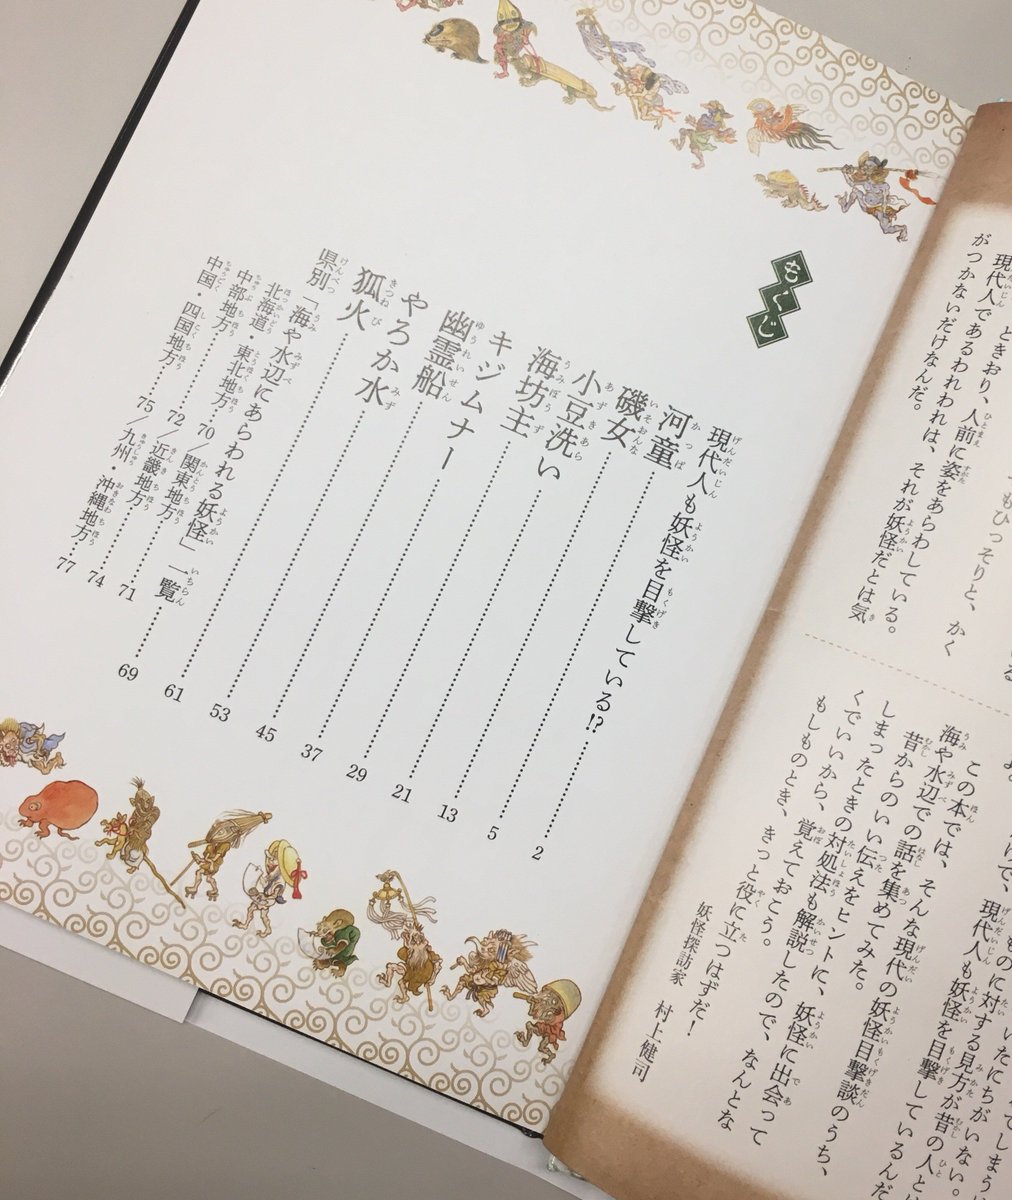 もひっそりと、かく
ときおり、人前に姿をあらわしている。
現代人であるわれわれは、それが妖怪だとは気
がつかないだけなんだ。
いたにちがいない。
ものに対する見方が昔の人と
現代人も妖怪を目撃しているんだ
この本では、そんな現代の妖怪目撃談のうち、
海や水辺での話を集めてみた。
昔からのいい伝えをヒントに、妖怪に出会って
しまったときの対処法も解説したので、なんとな
くでいいから、覚えておこう。
もしものとき、きっと役に立つはずだ！
妖怪探訪家 村上健司
もくじ
現代人も妖怪を目撃している!?……2
河童……5
磯女……13
小豆洗い……21
海坊主……29
キジムナー……37
幽霊船……45
やろか水……53
狐火……61
県別「海や水辺にあらわれる妖怪」一覧……69
北海道・東北地方……70／関東地方……71
中部地方……72／近畿地方……74
中国・四国地方……75／九州・沖縄地方……77